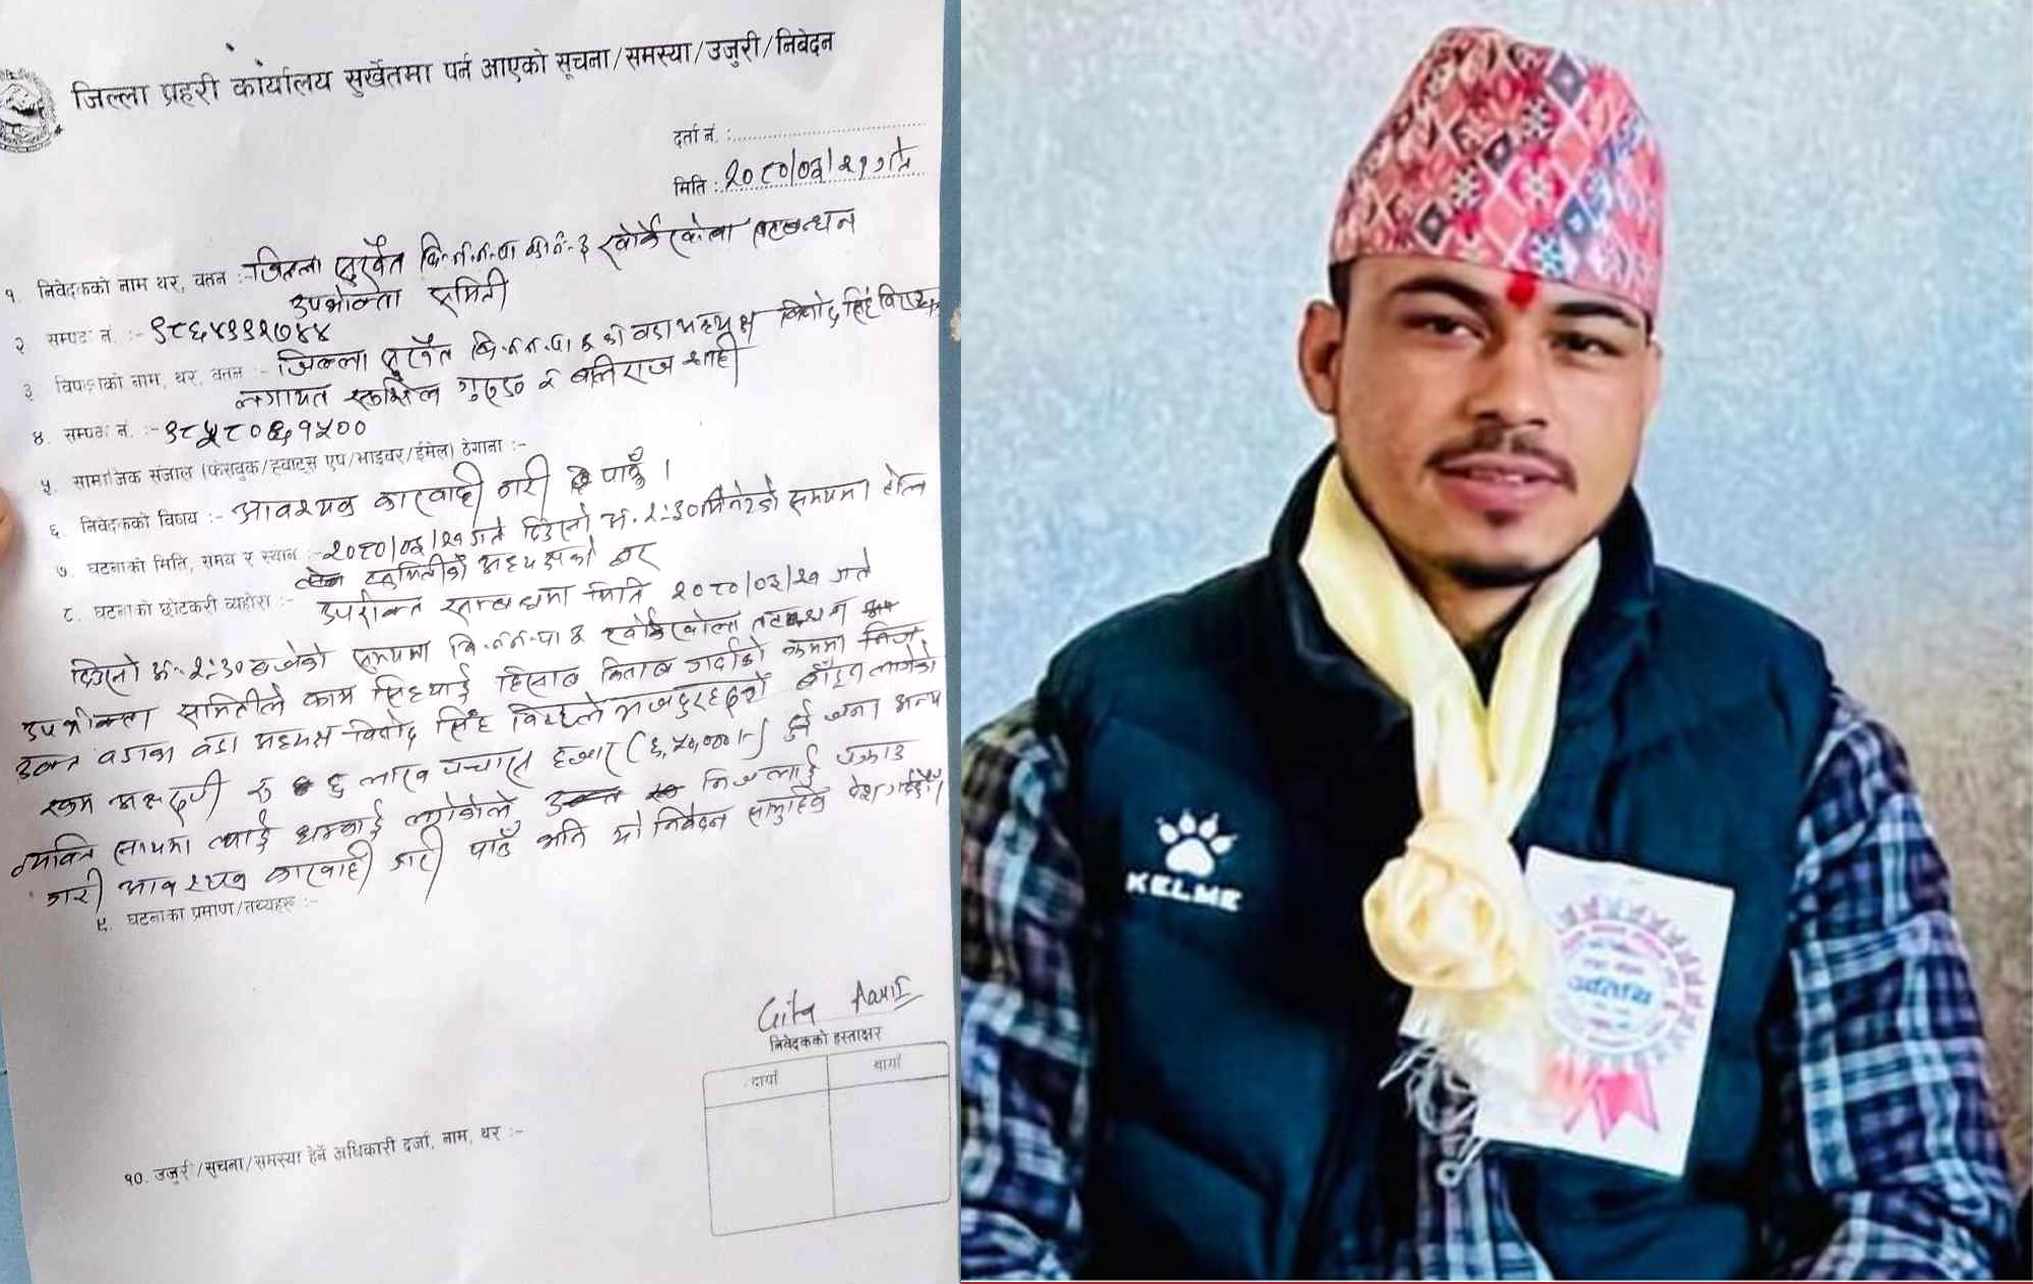 जिल्ला प्रहरी कार्यालय सुर्खेतमा पर्न आएको सूचना/समस्या/उजुरी/निवेदन
दर्ता नं. :
मिति : २०८०/०३/२१ गते
१ निवेदकको नाम थर, वतन :- जिल्ला सुर्खेत बि.न.न.पा वडा नं-३ खोर्केखोला तटबन्धन
उपभोक्ता समिती
२ सम्पर्क नं. :-
३ विपक्षको नाम, थर, वतन :- जिल्ला सुर्खेत बि.न.न.पा ३ का वडा अध्यक्ष विनोद सिंह विष्ट
लगायत सुशिल गुरुङ र बलिराज शाही
४. सम्पर्क नं. :- ९८५८०६१५००
५ सामाजिक संजाल (फेसबुक/ह्वाट्स एप/भाइवर/ईमेल) ठेगाना :-
६ निवेदकको विषय :- आवश्यक कारवाही गरी पाउँ ।
७. घटनाको मिति, समय र स्थान :- २०८०/०३/२१ गते दिउसो अ. २:३० मिनेटको समयमा
समितीको अध्यक्षको घर
८. घटनाको छोटकरी व्यहोरा :- उपरोक्त सम्बन्धमा मिति २०८०/०३/२१ गते
दिउसो अ. २:३० बजेको समयमा बि.न.न.पा ३ खोर्केखोला तटबन्धन
उपभोक्ता समितीले काम सिध्याई हिसाब किताब गर्दाको क्रममा निज
उक्त वडाका वडा अध्यक्ष विनोद सिंह विष्टले मजदुरहरुको बाँड्न लागेको
रकम रु ६ लाख पचास हजार (६,५०,०००।-) दुई जना अन्य
व्यक्ति साथमा ल्याई धम्काई निजलाई पक्राउ
गरी आवश्यक कारवाही गरी पाउँ भनि यो निवेदन सामुहिक पेश गर्दछौं।
९. घटनाका प्रमाण/तथ्यहरु :-
Gita
निवेदकको हस्ताक्षर
दायाँ बायाँ
१०. उजुरी/सूचना/समस्या हेर्ने अधिकारी दर्जा, नाम, थर :-
KELME